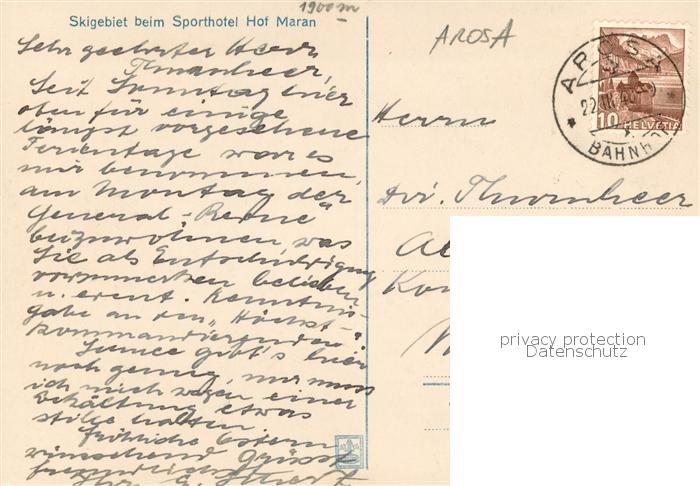 1900 m
Skigebiet beim Sporthotel Hof Maran
Sehr geehrter Herr
Thurnheer,
Seit Sonntag hier
oben für einige
längst vorgesehene
Ferientage war es
mir benommen,
am Montag der
"General-Revue"
beizuwohnen, was
Sie als Entschuldigung
vorzumerken belieben
u. event. Kenntnis-
gabe an den "Höchst-
kommandierenden".
Schnee gibt's hier
noch genug, nur muss
ich mich wegen einer
Erkältung etwas
stille halten.
Fröhliche Ostern
wünschend grüsst
freundlichst
Ihr
AROSA
AROSA
22.III.
BAHNH
10 HELVETIA
Herrn
Thurnheer
privacy protection
Datenschutz